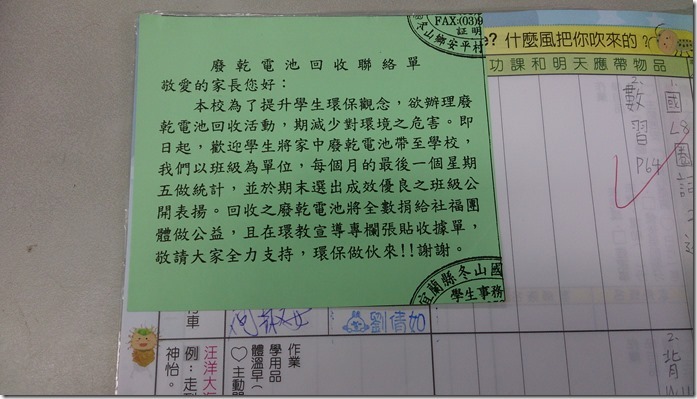 廢乾電池回收聯絡單
敬愛的家長您好：
本校為了提升學生環保觀念，欲辦理廢
乾電池回收活動，期減少對環境之危害。即
日起，歡迎學生將家中廢乾電池帶至學校，
我們以班級為單位，每個月的最後一個星期
五做統計，並於期末選出成效優良之班級公
開表揚。回收之廢乾電池將全數捐給社福團
體做公益，且在環教宣導專欄張貼收據單，
敬請大家全力支持，環保做伙來!!謝謝。
FAX:(03)9
証明
冬山鄉安平村
宜蘭縣冬山國
學生事務
e? 什麼風把你吹來的?
功課和明天應帶物品
1. 國L8
2. 數習P64
車
劉倩如
作業
學用品
體溫早(
♡主動
汪洋大海
例：走到
神怡。
2. 背